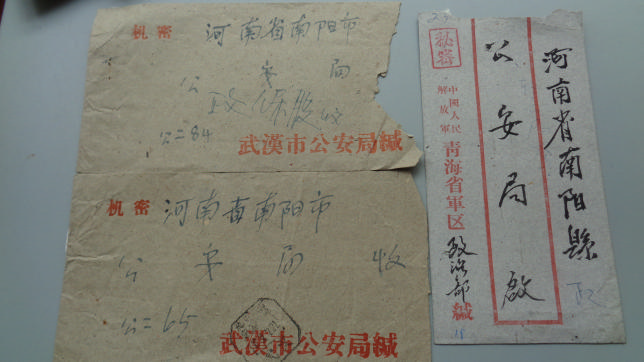 机密
河南省南阳市
公安局
政保股收
公二84
武漢市公安局緘
机密
河南省南阳市
公安局收
公二65
武漢市公安局緘
秘密
河南省南阳縣
公安局啟
中國人民
解放軍
青海省軍区政治部緘